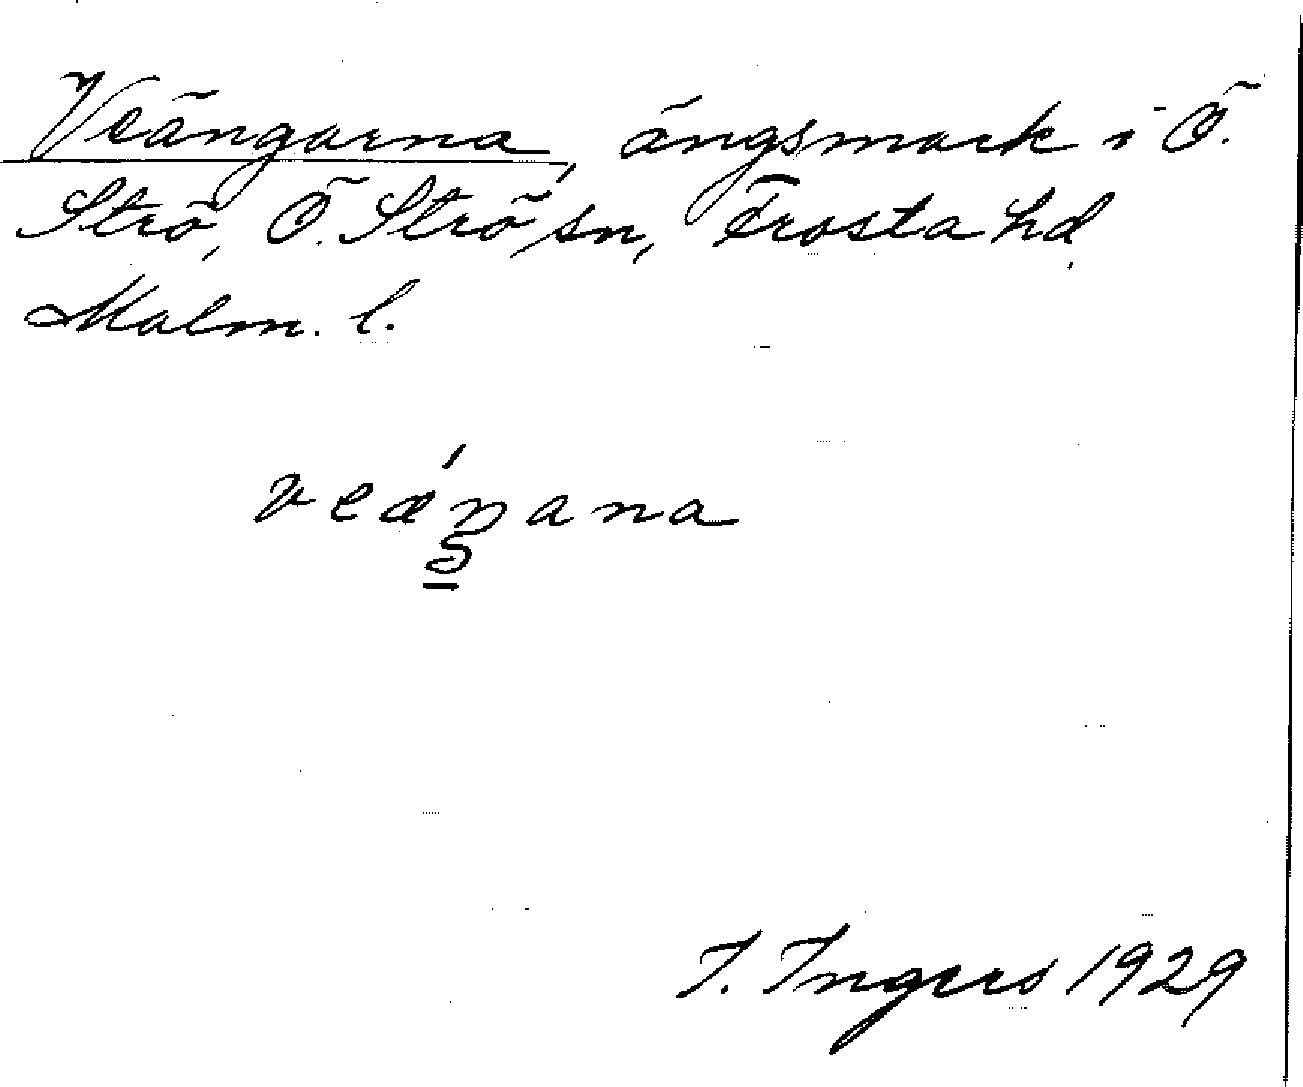 Veängarna, ängsmark i Ö.
Strö, Ö. Strö sn, Frosta hd,
Malm. l.
veæ´ŋana
I. Ingers 1929